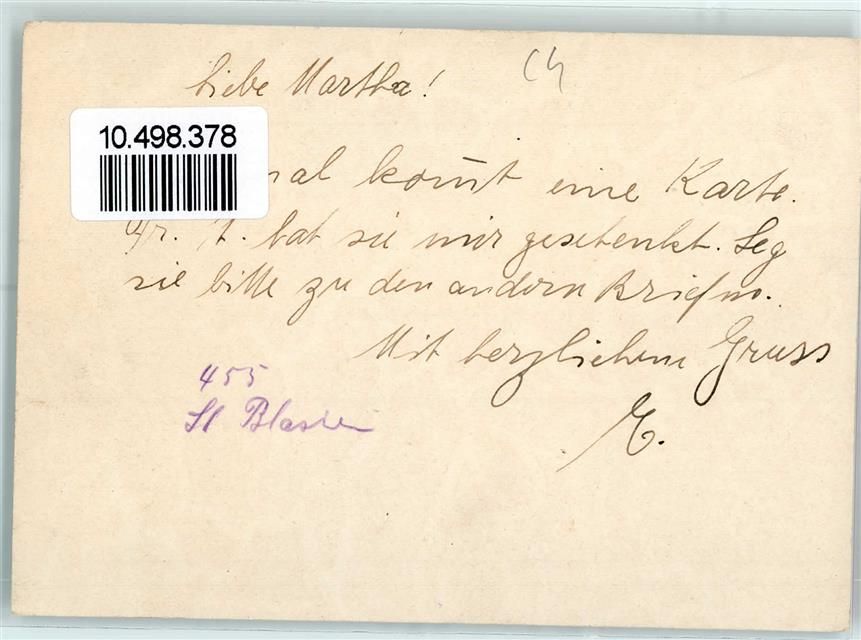 Liebe Martha!
10.498.378
mal kom̄t eine Karte.
Fr. A. hat sie mir geschenkt. Leg
sie bitte zu den andern Briefm.
Mit herzlichem Gruss
455
St Blasien
E.